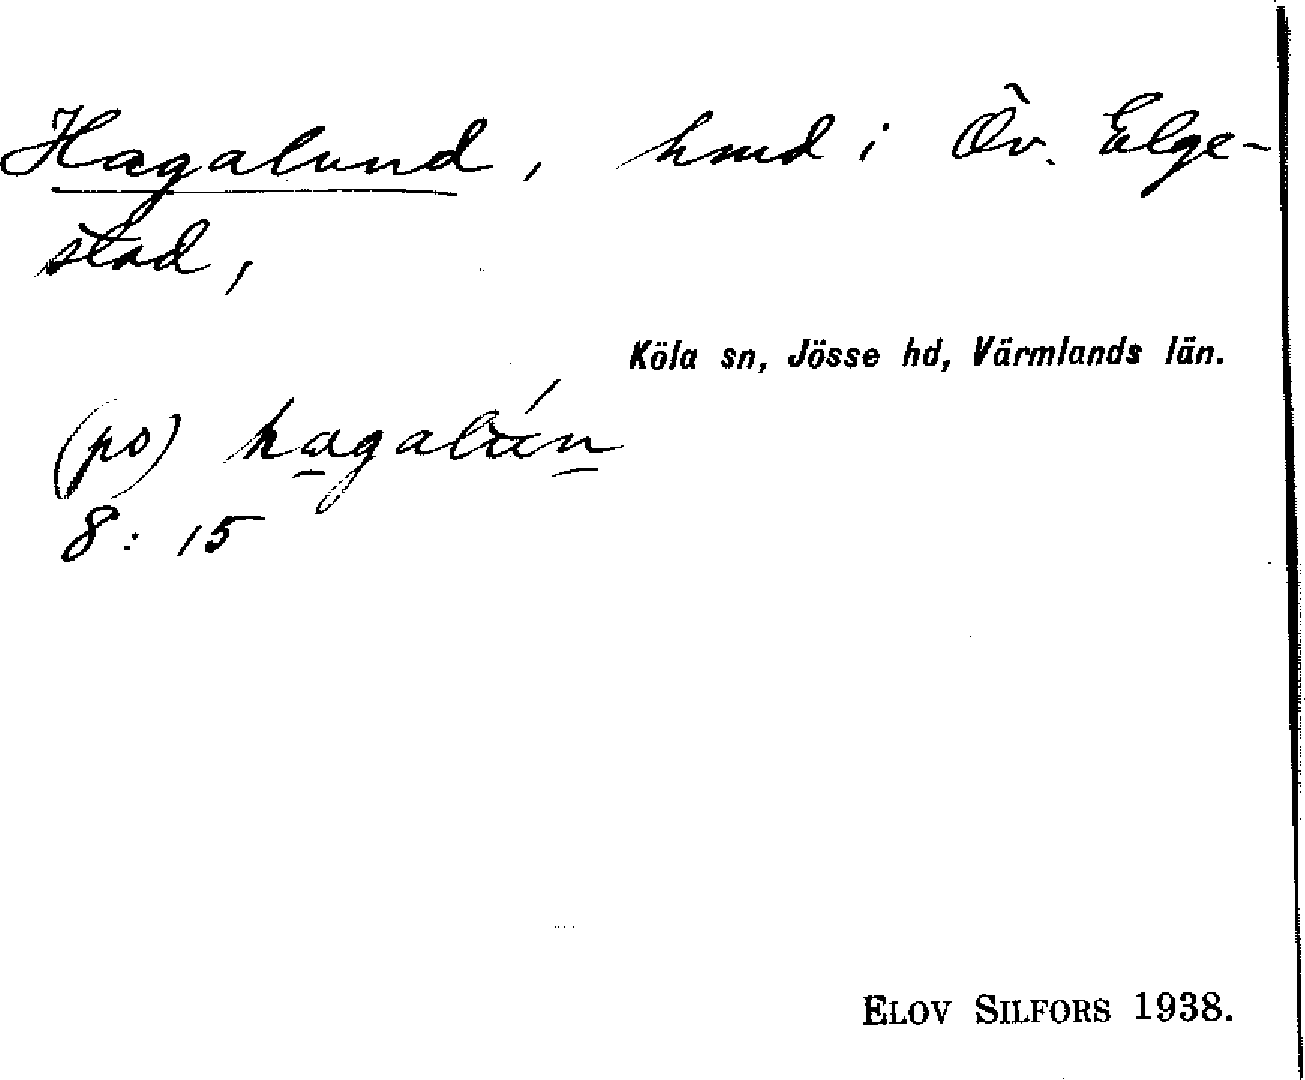 Hagalund, hmd i Öv. Elge-
stad,
Köla sn, Jösse hd, Värmlands län.
(po) hagalún
8: 15
ELOV SILFORS 1938.